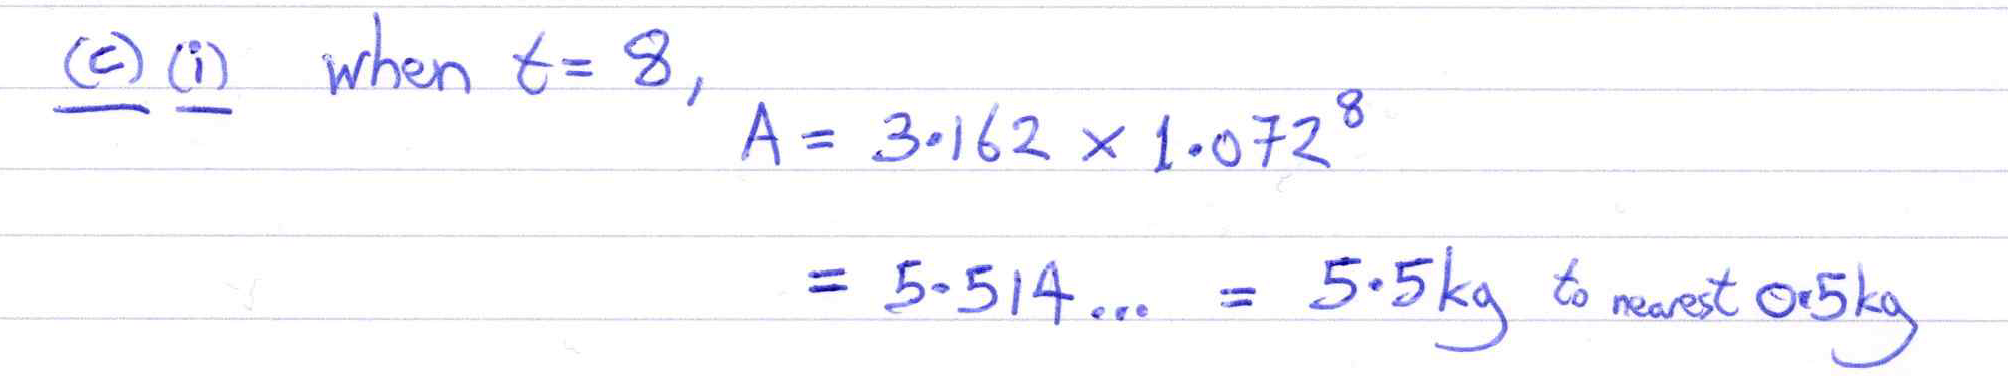 (c) (i) when t = 8,
A = 3.162 × 1.072⁸
= 5.514... = 5.5kg to nearest 0.5kg